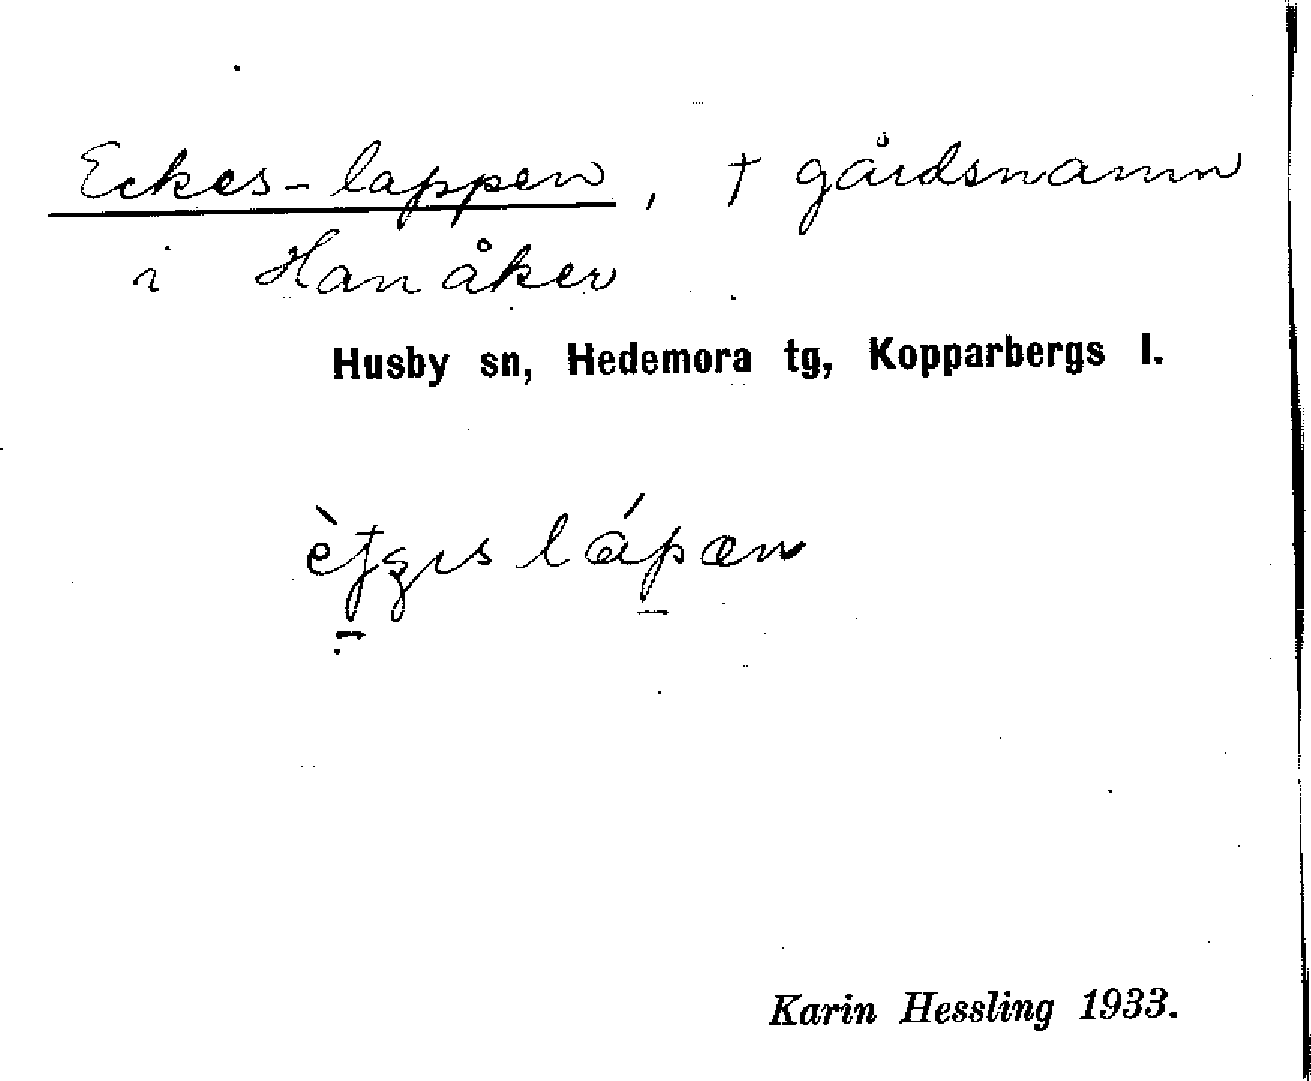 Eckes-lappen, † gårdsnamn
i Hanåker
Husby sn, Hedemora tg, Kopparbergs l.
Karin Hessling 1933.